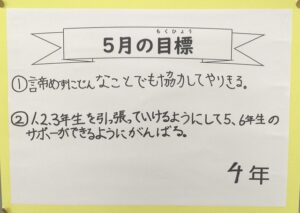 もくひょう
5月の目標
①諦めずにどんなことでも協力してやりきる。
②1.2.3年生を引っ張っていけるようにして5、6年生の
サポーができるようにがんばる。
4年